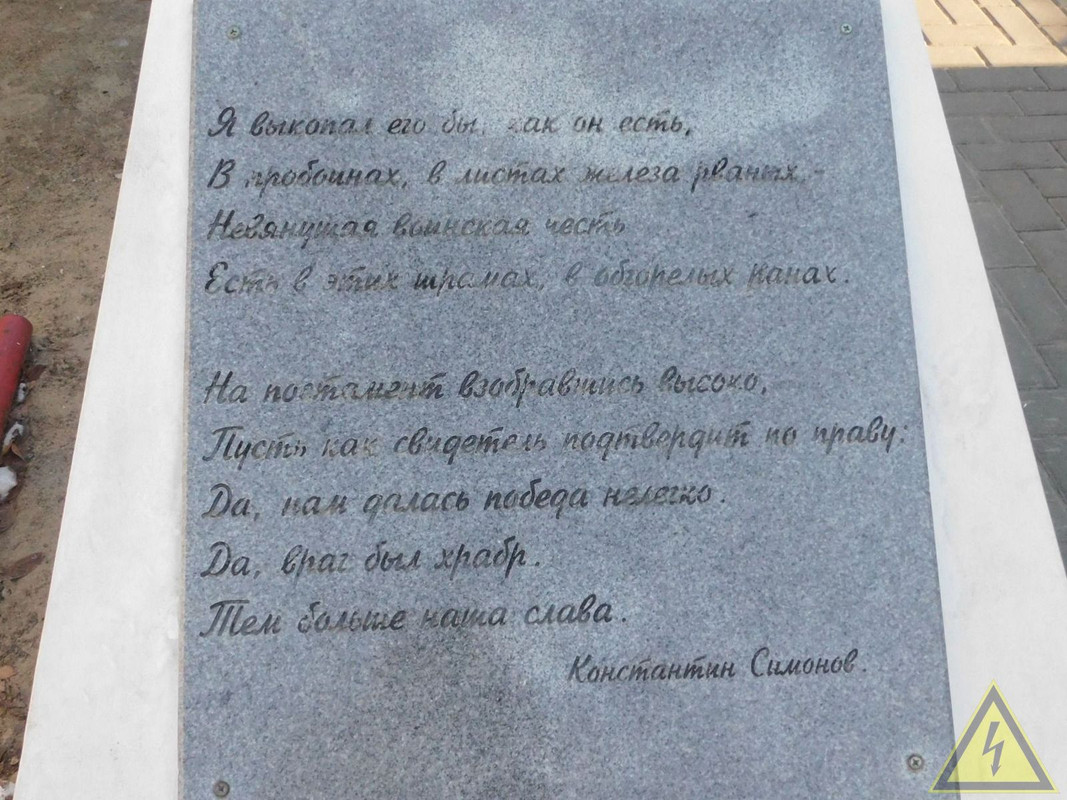 Я выкопал его бы, как он есть,
В пробоинах, в листах железа рваных,-
Невянущая воинская честь
Есть в этих шрамах, в обгорелых ранах.
На постамент взобравшись высоко,
Пусть как свидетель подтвердит по праву:
Да, нам далась победа нелегко.
Да, враг был храбр.
Тем больше наша слава.
Константин Симонов.